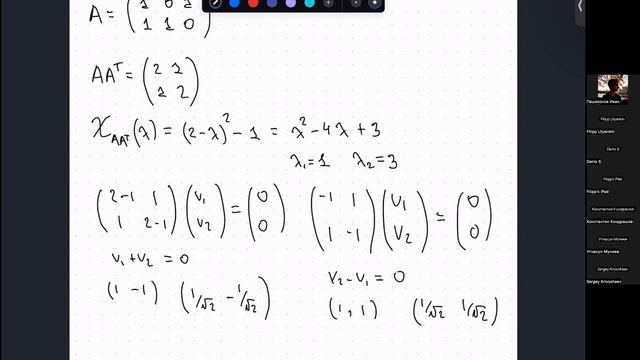 A = (1 0 1
1 1 0)
AAᵀ = (2 1
1 2)
χ_AAᵀ(λ) = (2-λ)² - 1 = λ² - 4λ + 3
λ₁=1 λ₂=3
(2-1 1
1 2-1)(v₁
v₂) = (0
0)
(-1 1
1 -1)(v₁
v₂) = (0
0)
v₁+v₂ = 0
(1 -1) (1/√2 -1/√2)
v₂-v₁ = 0
(1, 1) (1/√2 1/√2)
Filipp Ulyankin
Filipp Ulyankin
Denis S
Denis S
Filipp's iPad
Filipp's iPad
Константин Кондрашов
Константин Кондрашов
Sergey Krivosheev
Sergey Krivosheev